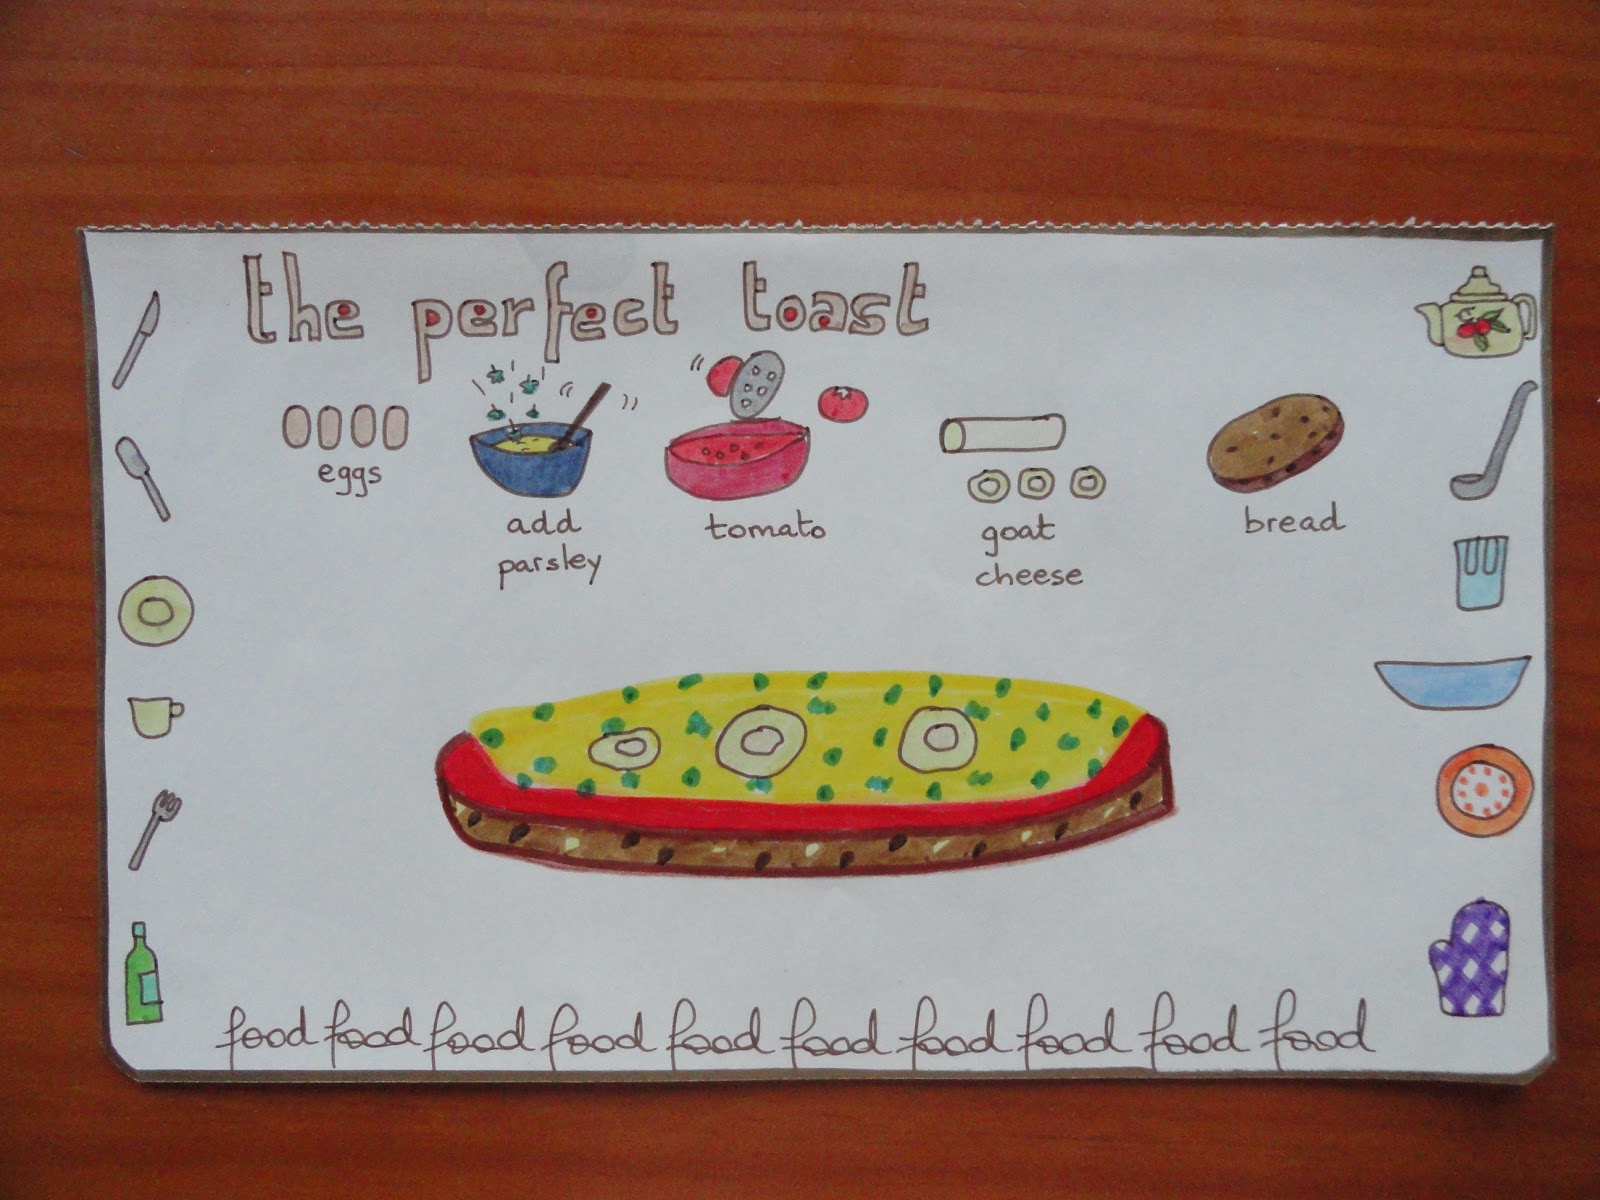 the perfect toast
eggs
add
parsley
tomato
goat
cheese
bread
food food food food food food food food food food